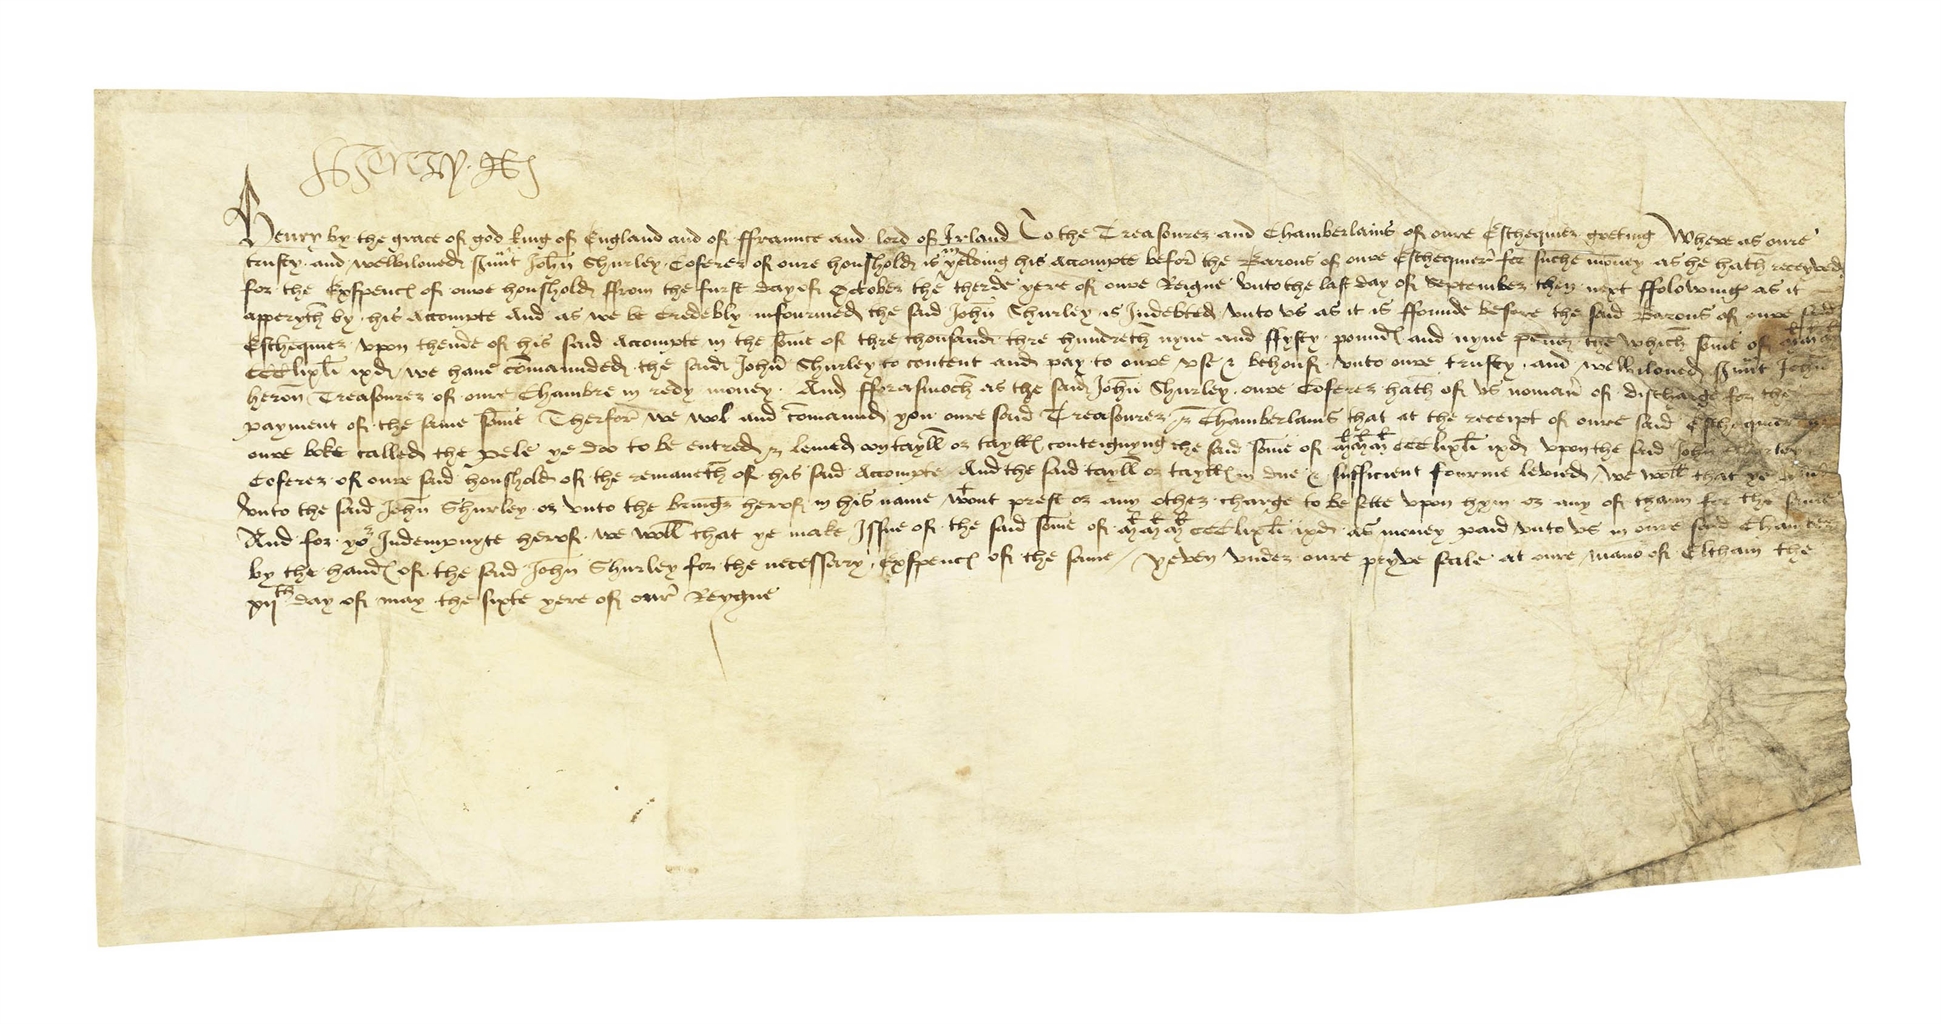 Henry R
Henry by the grace of god king of England and of ffraunce and lord of Irland To the Treasourer and Chamberlains of oure Eschequier greting Where as oure
trusty and welbiloued su̅nt John̅ Shurley Coferer of oure houshold is in yelding his accompte befor the Barons of oure Eschequier for suche money as he hath receyved
for the Exspences of oure houshold ffrom the furst day of October the therde yere of oure Reigne vnto the last day of September then next ffolowing as it
apperyth by his accompte And as we be credebly infourmed the said John̅ Shurley is Indebted vnto vs as it is ffounde before the said Barons of oure said
Eschequier vpon thende of his said accompte in the so̅me of thre thousand thre hundreth nyne and ffyfty poundes and nyne pence the which so̅me of
CCClixli ixd we haue co̅maunded the said John̅ Shurley to content and pay to oure vse & behouf vnto oure trusty and welbiloued su̅nt John̅
heron̅ Treasourer of oure Chambre in redy money And fforasmoch as the said John̅ Shurley oure Coferer hath of vs no maner of discharge for the
payment of the same so̅me Therfor we wol and co̅maund you oure said Treasourer & Chamberlains that at the receipt of oure said Eschequier in
oure boke called the pele ye doo to be entred & leuied oon tayll or taylles conteignyng the said so̅me of mlmlml CCClixli ixd vpon the said John Shurley
Coferer of oure said houshold of the remaneth of his said accompte And the said taill or taylles in due & sufficient fourme levied we woll that ye
vnto the said John̅ Shurley or vnto the bringer herof in his name wtout prest or any other charge to be sette vpon hym or any of thaim for the same
And for yor Indempnyte herof we woll that ye make Issue of the said so̅me of mlmlml CCClixli ixd as money paid vnto vs in oure said Chambre
by the handes of the said John̅ Shurley for the necesserry exspences of the same Yeven vnder oure pryve seale at oure mano of Eltham the
xijth day of may the sixte yere of our Reygne